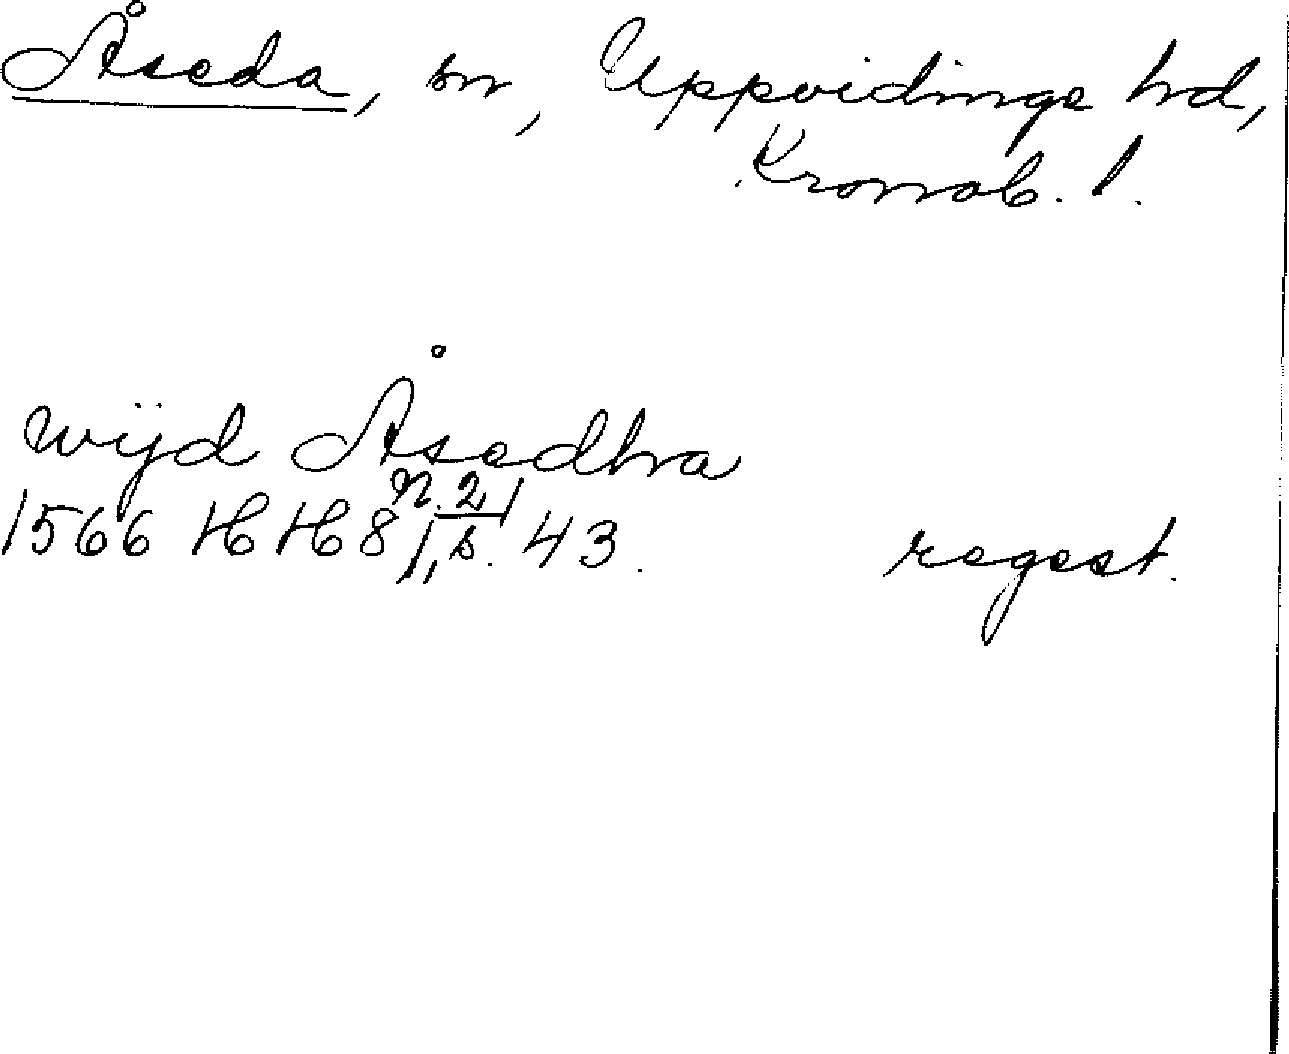 Åseda, sn, Uppvidinge hd,
Kronob. l.
wijd Åsedha
1566 HH 8 n. 21, s. 43. regest.